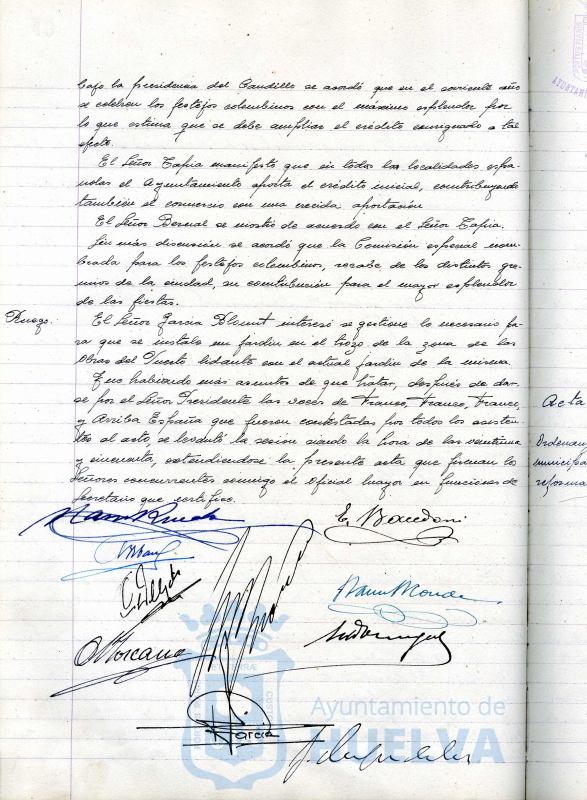 bajo la presidencia del Caudillo se acordó que en el corriente año
se celebren los festejos colombinos con el máximo esplendor por
lo que estima que se debe ampliar el crédito consignado a tal
efecto.
El Señor Tapia manifestó que en todas las localidades espa-
ñolas el Ayuntamiento aporta el crédito inicial, contribuyendo
también el comercio con una crecida aportación
El Señor Bernal se mostró de acuerdo con el Señor Tapia.
Sin más discusión se acordó que la Comisión especial nom-
brada para los festejos colombinos, recabe de los distintos gre-
mios de la ciudad, su contribución para el mayor esplendor
de las fiestas.
Ruego.
El Señor Garcia Blount interesó se gestione lo necesario pa-
ra que se instale un jardin en el trozo de la zona de las
Obras del Puerto lindante con el actual jardin de la misma.
Y no habiendo más asuntos de que tratar, después de dar-
se por el Señor Presidente las voces de Franco, Franco, Franco,
y Arriba España que fueron contestadas por todos los asisten-
tes al acto, se levantó la sesión siendo la hora de las veintiuna
y cincuenta, extendiendose la presente acta que firman los
Señores concurrentes conmigo el Oficial Mayor en funciones de
Secretario que certifico.
Acta
Ordenan
municipa
reforma
Garcia
Ayuntamiento de
HUELVA